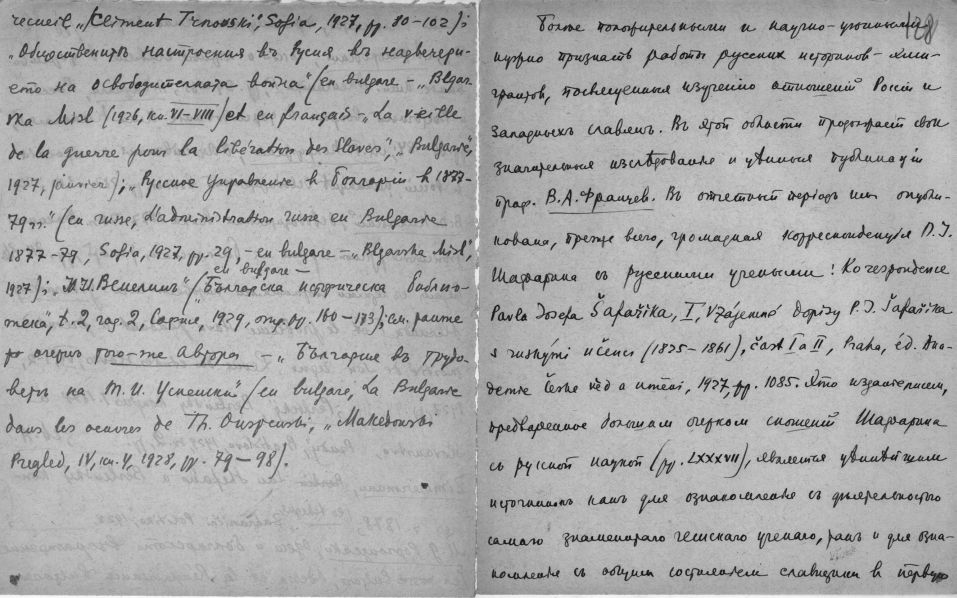 recueil „Clément Trnovski", Sofia, 1927, pp. 80-102);
„Общественитѣ настроения въ Русия въ надвечери-
ето на освободителната война" (en bulgare - „Blgar-
ska Misl" (1926, кн. VI-VIII) et en français - „La vieille
de la guerre pour la libération des Slaves", „Bulgarie",
1927, janvier); „Русское Управление в Болгарии в 1877-
79 гг." (en russe, L'administration russe en Bulgarie
1877-79, Sofia, 1927, pp. 29, - en bulgare - „Blgarska Misl",
1927); „Ю.И. Венелинъ" (en bulgare - „Българска историческа библио-
тека", т. 2, год. 2, София, 1929, стр. pp. 160-173); см. ранѣе
очеркъ того-же Автора - „България въ трудо-
ветѣ на Т.И. Успенски" (en bulgare, La Bulgarie
dans les oeuvres de Th. Ouspenski, „Makedonski
Pregled, IV, кн. 4, 1928, pp. 79-98).
128
Более положительными и научно-учеными
нужно признать работы русских историков-эми-
грантов, посвященныя изучению отношений России и
западных славян. Въ этой области продолжает свои
значительныя изследования и ценныя публикации
проф. В.А. Францев. Въ отчетный период им опубли-
кована, прежде всего, громадная корреспонденция П.І.
Шафарика съ русскими учеными: Korespondence
Pavla Josefa Šafaříka, I, Vzájemné dopisy P.J. Šafaříka
s ruskými učenci (1825-1861), část I a II, Praha, éd. Aka-
demie České věd a umění, 1927, pp. 1085. Это издание писем,
предваренное большим очерком сношений Шафарика
съ русской наукой (pp. LXXXVII), является ценнейшим
источником как для ознакомления съ деятельностью
самаго знаменитаго чешскаго ученаго, так и для озна-
комления съ общим состоянием славистики в первую